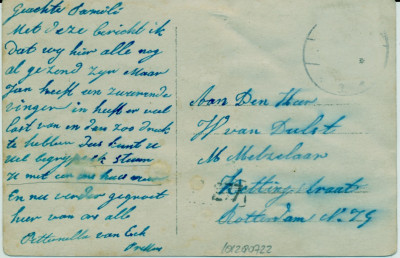 Geachte Famili
Met deze bericht ik
Dat wy hier alle nog
al gezond zyn Maar
Jan heeft een zweerende
vinger in heeft er veel
last van en dan zoo druk
te hebben Dus kunt u
wel begrypen ik steun
u met een ons huis
En nu verder gegroet
hier van ons alle
Petternella van Eck
Aan Den Heer
W van Dulst
M Metselaar
Ketting straat
Rotterdam N. 79
101280722